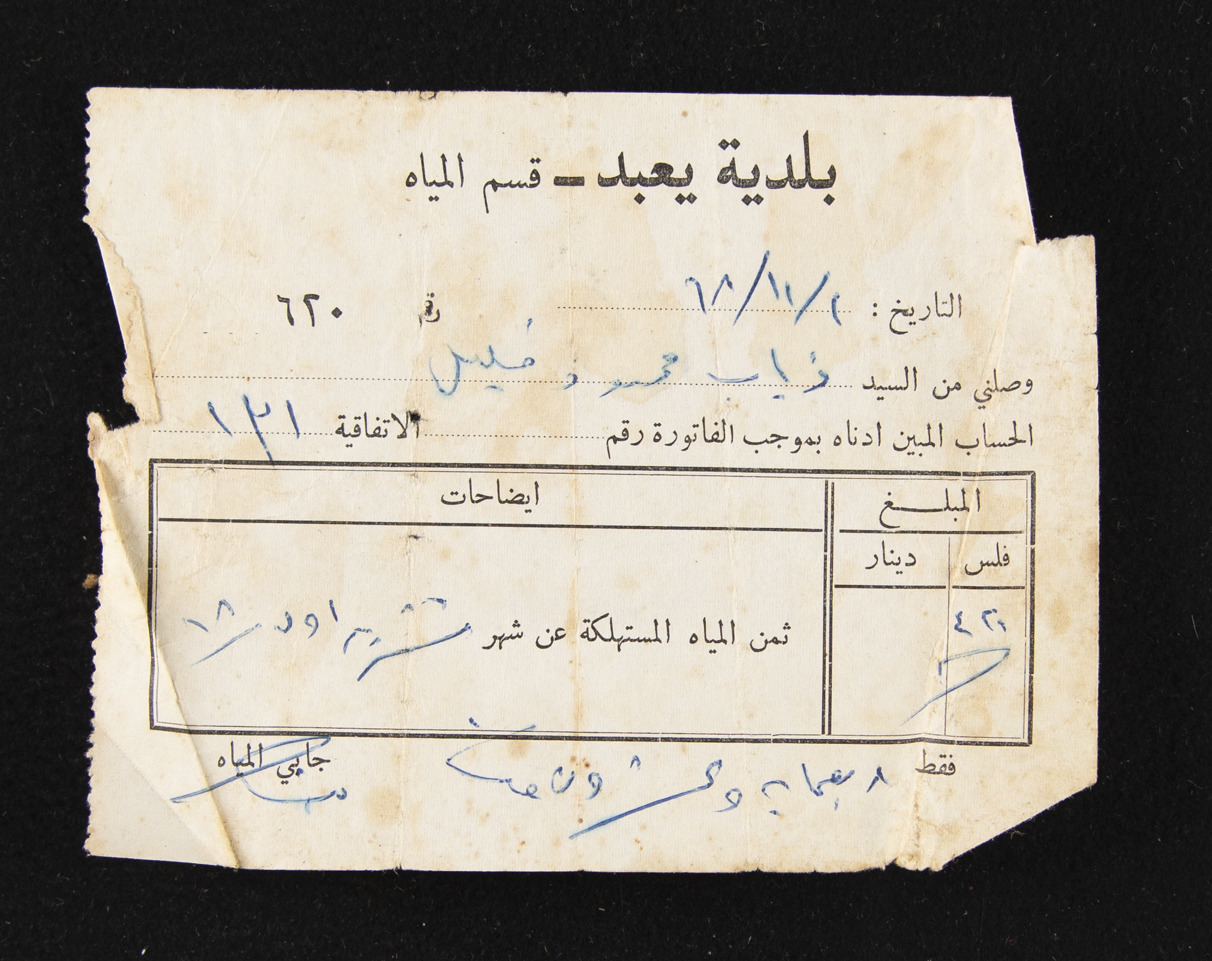 بلدية يعبد ـ قسم المياه
التاريخ : ٢/١١/٦٨ رقم ٦٢٠
وصلني من السيد ذياب محمود خليل
الحساب المبين ادناه بموجب الفاتورة رقم الاتفاقية ١٣١
المبلغ ايضاحات
فلس دينار
٤٢٠ ثمن المياه المستهلكة عن شهر تشرين اول ٦٨
فقط اربعماية وعشرون فلسا جابي المياه